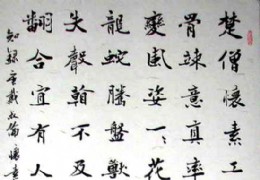 楚僧懷素工
骨竦意真率
變風姿一一花
龍蛇騰盤獸
失聲不及
翻合宜有人
知錄唐戴叔倫